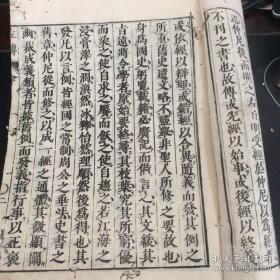 仲尼從而明之左丘明受經於仲尼以為經
不刊之書也故傳或先經以始事或後經以終
或依經以辯理或錯經以合異隨義而發其例之
所重舊史遺文略不盡舉非聖人所修之要故也
身為國史躬覽載籍必廣記而備言之其文緩其
旨遠將令學者原始要終尋其枝葉究其所窮優
而柔之使自求之饜而飫之使自趨之若江海之
浸膏澤之潤渙然冰釋怡然理順然後為得也其
發凡以言例皆經國之常制周公之垂法史書之
舊章仲尼從而修之以成一經之通體其微顯闡
幽裁成義類者皆據舊例而發義指行事以正褒